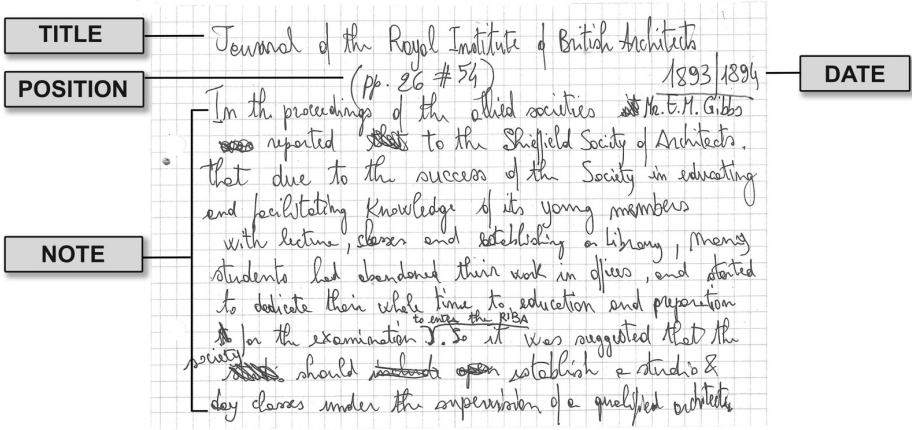 TITLE
Journal of the Royal Institute of British Architects
POSITION
(pp. 26 # 54)
1893/1894
DATE
In the proceedings of the allied societies Mr. E.M. Gibbs
reported to the Sheffield Society of Architects.
that due to the success of the Society in educating
and facilitating Knowledge of its young members
with lecture, classes and establishing a library, many
NOTE
students had abandoned their work in offices, and started
to dedicate their whole time to education and preparation
to enter the RIBA
for the examination). So it was suggested that the
society
should include open establish a studio &
day classes under the supervision of a qualified architects